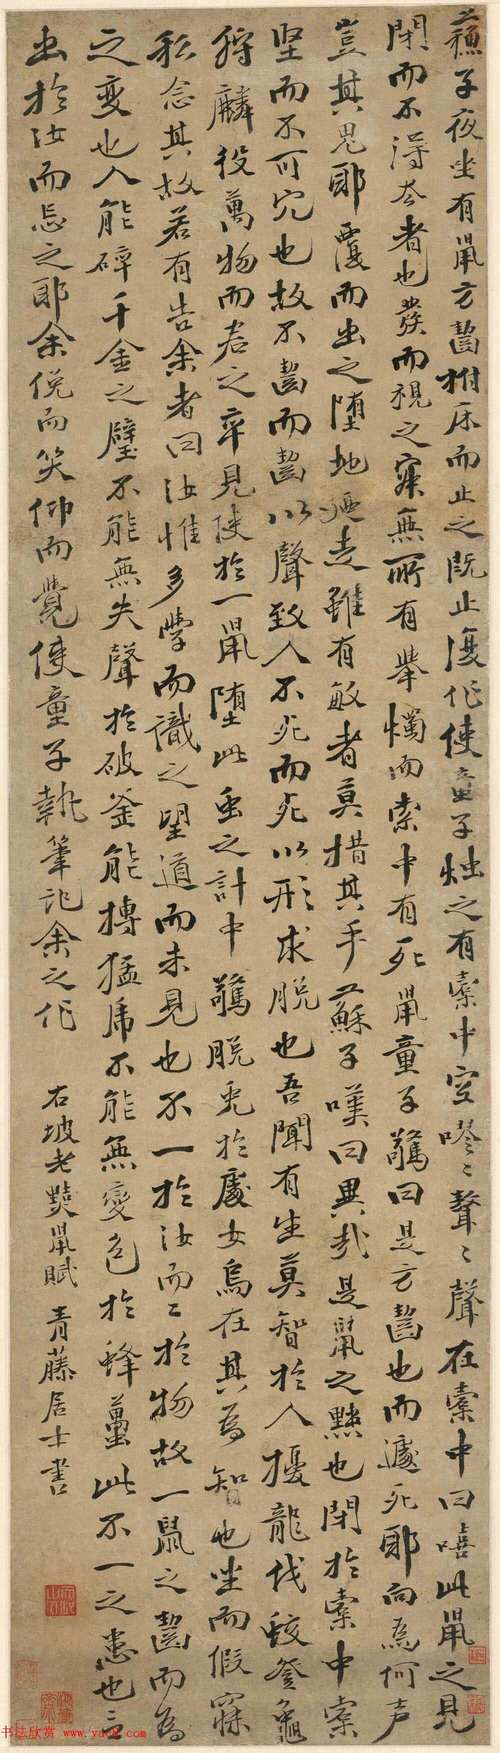 蘇子夜坐有鼠方齧拊床而止之既止復作使童子燭之有橐中空嘐〻聱〻聲在橐中曰嘻此鼠之見
閉而不得去者也發而視之寂無所有舉燭而索中有死鼠童子驚曰是方齧也而遽死耶向為何声
豈其鬼耶覆而出之墮地迺走雖有敏者莫措其手蘇子嘆曰異哉是鼠之黠也閉於橐中橐
堅而不可穴也故不齧而齧以聲致人不死而死以形求脫也吾聞有生莫智於人擾龍伐蛟登龜
狩麟役萬物而君之卒見使於一鼠墮此虫之計中驚脫兔於處女烏在其為智也坐而假寐
私念其故若有告余者曰汝惟多學而識之望道而未見也不一於汝而二於物故一鼠之齧而為
之變也人能碎千金之璧不能無失聲於破釜能搏猛虎不能無變色於蜂蠆此不一之患也言
出於汝而忘之耶余俛而笑仰而覺使童子執筆記余之作
右坡老黠鼠賦 青藤居士書
书法欣赏 www.yac8.com